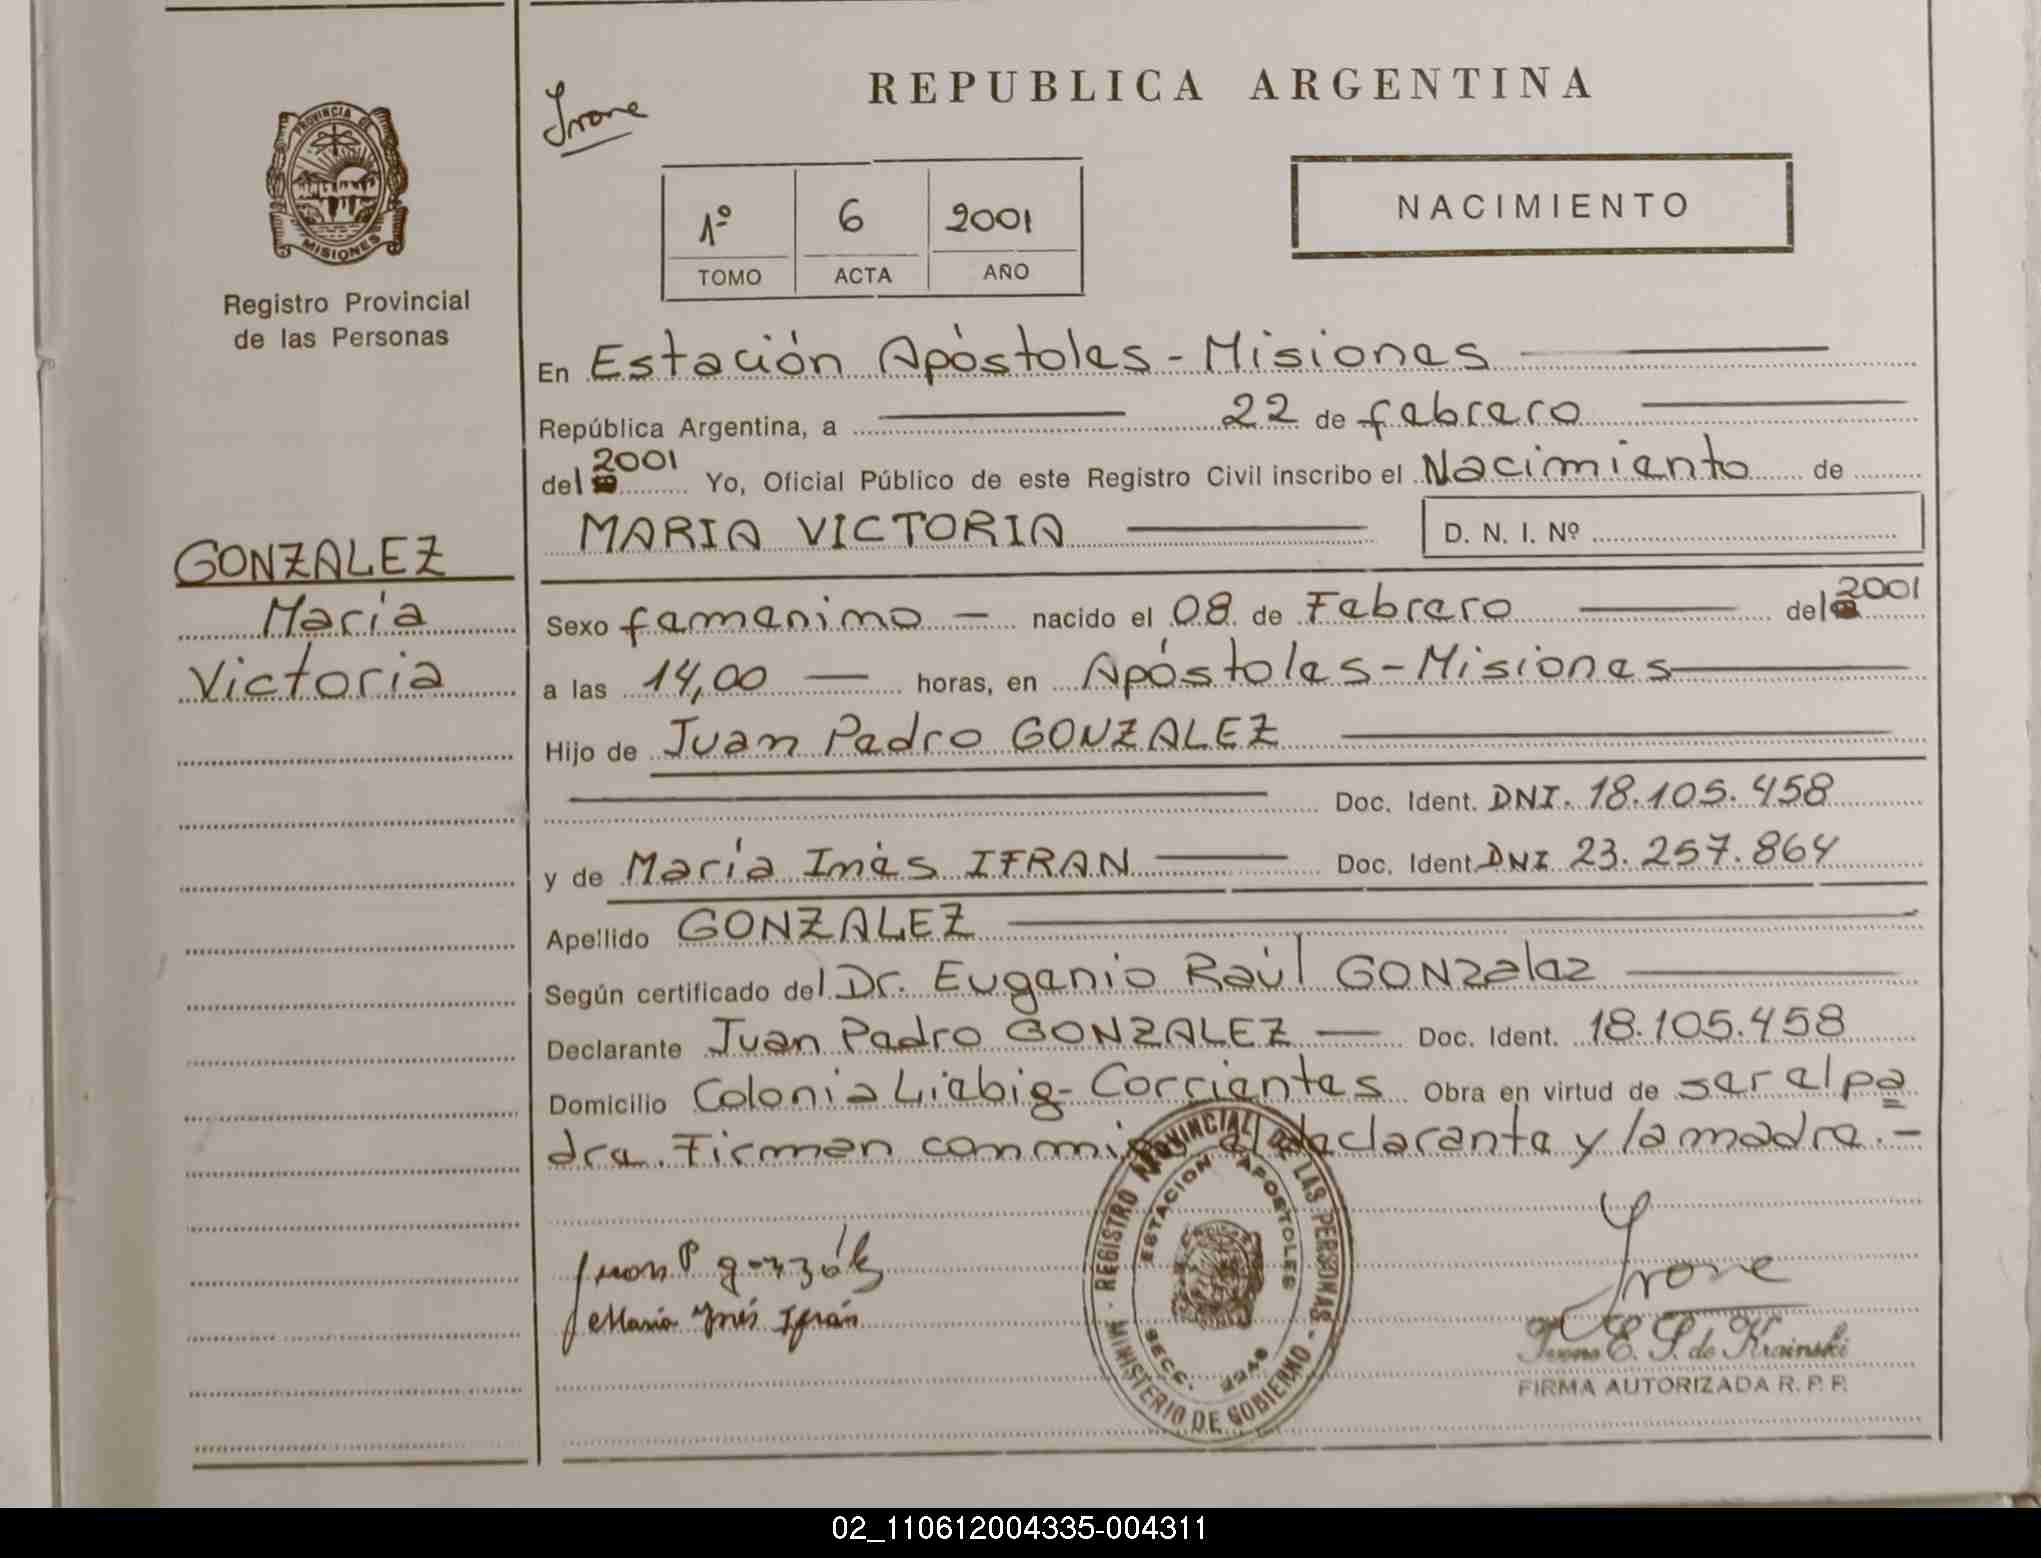 REPUBLICA ARGENTINA
Irone
PROVINCIA DE
MISIONES
Registro Provincial
de las Personas
1º 6 2001
TOMO ACTA AÑO
NACIMIENTO
En Estación Apóstoles - Misiones
República Argentina, a 22 de febrero
del 2001 Yo, Oficial Público de este Registro Civil inscribo el Nacimiento de
MARIA VICTORIA D. N. I. Nº
GONZALEZ
María
Victoria
Sexo femenino - nacido el 08 de Febrero del 2001
a las 14,00 horas, en Apóstoles - Misiones
Hijo de Juan Pedro GONZALEZ
Doc. Ident. DNI. 18.105.458
y de María Inés IFRAN Doc. Ident. DNI 23.257.864
Apellido GONZALEZ
Según certificado del Dr. Eugenio Raúl GONZalez
Declarante Juan Pedro GONZALEZ Doc. Ident. 18.105.458
Domicilio Colonia Liebig - Corrientes Obra en virtud de ser el pa
dre. Firman conmigo el declarante y la madre. -
María Inés Ifrán
REGISTRO PROVINCIAL DE LAS PERSONAS - MINISTERIO DE GOBIERNO -
ESTACION APOSTOLES
SECC.
Irone
E. S. de Krainski
FIRMA AUTORIZADA R. P. P.
02_110612004335-004311